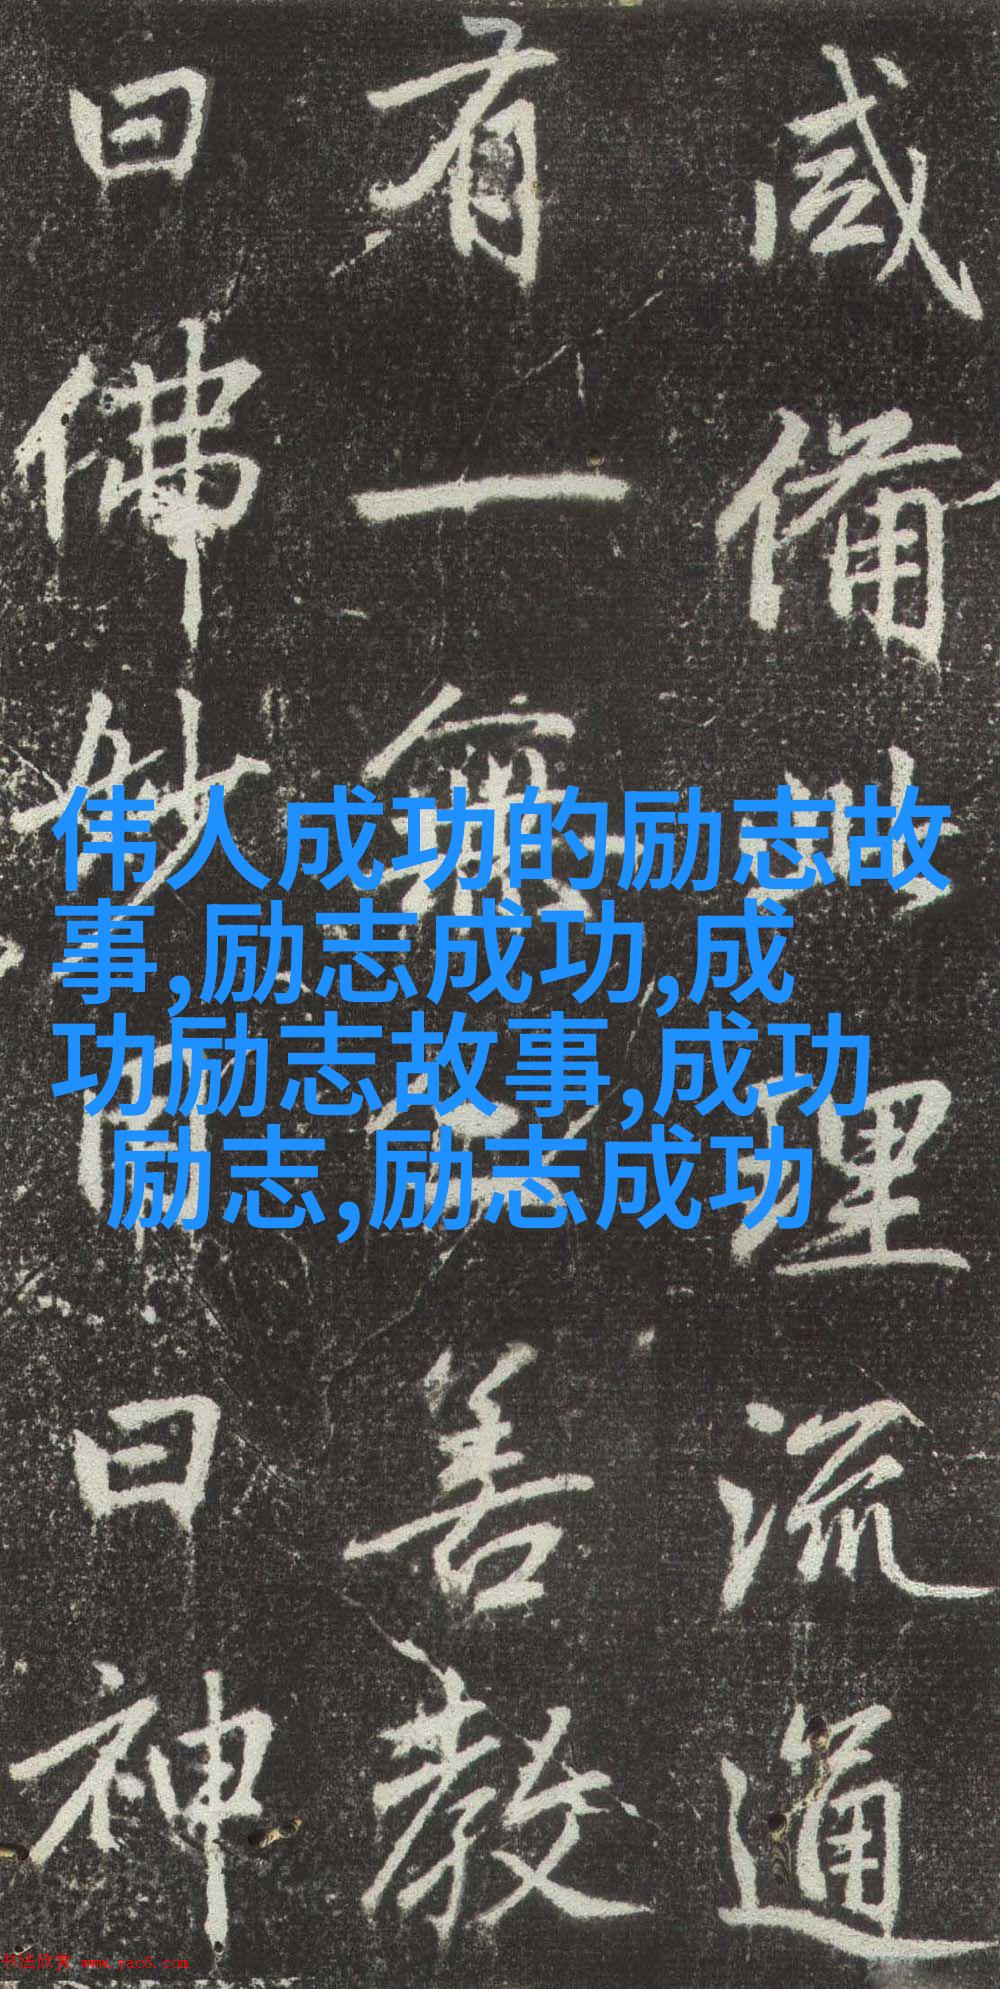 咸備理流通
有一無善教
曰佛妙曰神
伟人成功的励志故
事,励志成功,成
功励志故事,成功
励志,励志成功
书法欣赏 www.yac8.com